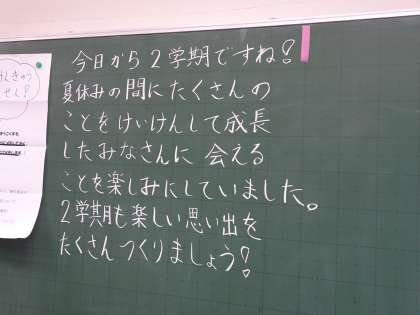 今日から2学期ですね!
夏休みの間にたくさんの
ことをけいけんして成長
したみなさんに会える
ことを楽しみにしていました。
2学期も楽しい思い出を
たくさんつくりましょう!